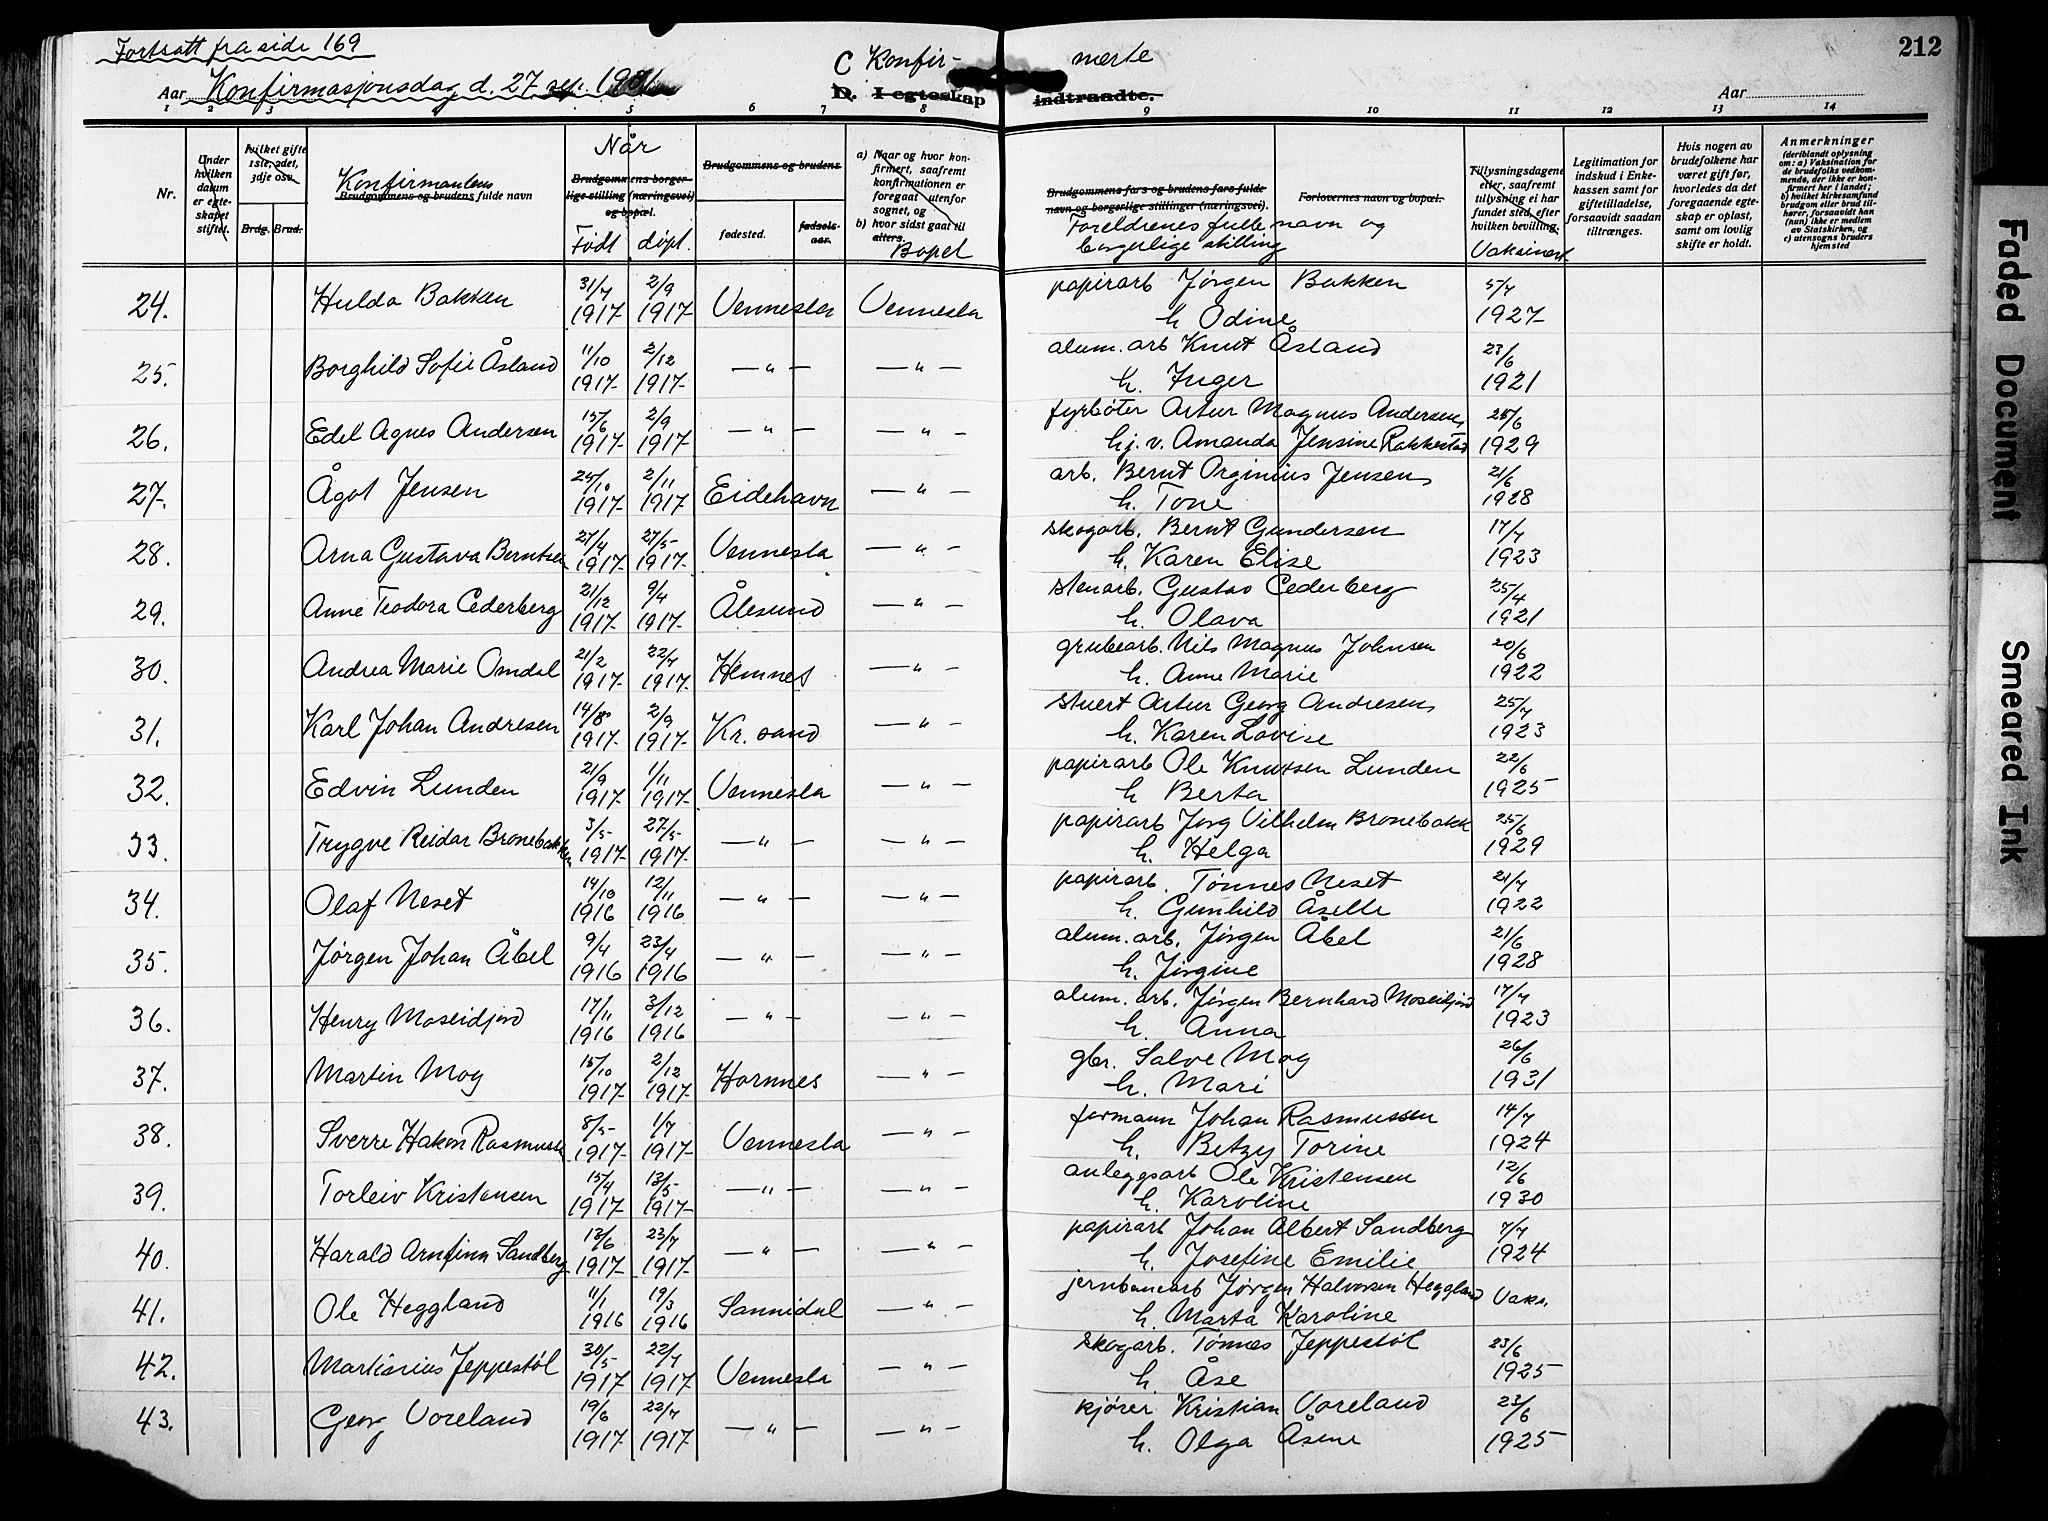 Fortsatt fra side 169
212
C Konfir- merte
Aar Konfirmasjonsdag d. 27 sep. 1931
D. I egteskap indtraadte.
Aar
1 2 3 4 5 6 7 8 9 10 11 12 13 14
Nr.
Under hvilken datum er egteskapet stiftet.
hvilket gifte 1ste, 2det, 3dje osv.
Brdg. Brud.
Konfirmantens
Brudgommens og brudens fulde navn
Når
Brudgommens borgerlige stilling (næringsvei) og bopæl.
Født døpt.
Brudgommens og brudens
fødested. fødselsaar.
a) Naar og hvor konfirmert, saafremt konfirmationen er foregaat utenfor sognet, og
b) hvor sidst gaat til alters.
Bopel
Brudgommens fars og brudens fars fulde navn og borgerlige stillinger (næringsvei).
Forlovernes navn og bopæl.
Foreldrenes fulle navn og borgerlige stilling
Tillysningsdagene eller, saafremt tillysning ei har fundet sted, efter hvilken bevilling.
Vaksinert
Legitimation for indskud i Enkekassen samt for giftetilladelse, forsaavidt saadan tiltrænges.
Hvis nogen av brudefolkene har været gift før, hvorledes da det foregaaende egteskap er opløst, samt om lovlig skifte er holdt.
Anmerkninger
(deriblandt oplysning om: a) Vaksination for de brudefolks vedkommende, der ikke er konfirmert her i landet; b) hvilket kirkesamfund brudgom eller brud tilhører, forsaavidt han (hun) ikke er medlem av Statskirken, og c) utensogns bruders hjemsted
24. Hulda Bakken 31/7 1917 2/9 1917 Vennesla Vennesla papirarb Jørgen Bakken h Odine 5/7 1927
25. Borghild Sofie Åsland 11/10 1917 2/12 1917 — " — — " — alum. arb Knut Åsland h. Inger 23/6 1921
26. Edel Agnes Andersen 15/6 1917 2/9 1917 — " — — " — fyrbøter Artur Magnus Andersen, hj. v. Amanda Jensine Rakkestad 25/6 1929
27. Ågot Jensen 25/10 1917 2/11 1917 Eidehavn — " — arb. Bernt Orginius Jensen, h. Tone 21/6 1928
28. Arna Gustava Berntsen 27/4 1917 27/5 1917 Vennesla — " — skogarb. Bernt Gundersen h. Karen Elise 17/7 1923
29. Anne Teodora Cederberg 21/12 1917 9/4 1917 Ålesund — " — stenarb. Gustav Cederberg h. Olava 25/4 1921
30. Andrea Marie Omdal 21/2 1917 22/7 1917 Hemnes — " — grubearb. Nils Magnus Johnsen h. Anne Marie 20/6 1922
31. Karl Johan Andresen 14/8 1917 2/9 1917 Kr. sand — " — stuert Artur Georg Andresen, h. Karen Lovise 25/7 1923
32. Edvin Lunden 21/9 1917 1/11 1917 Vennesla — " — papirarb Ole Knutsen Lunden h Berta 22/6 1925
33. Trygve Reidar Bronebakken 3/5 1917 27/5 1917 — " — — " — papirarb Jørg Vilhelm Bronebakk h. Helga 25/6 1929
34. Olaf Neset 14/10 1916 12/11 1916 — " — — " — papirarb. Tønnes Neset h. Gunhild Åselle 21/7 1922
35. Jørgen Johan Åbel 9/4 1916 23/4 1916 — " — — " — alum. arb. Jørgen Åbel h. Jørgine 21/6 1928
36. Henry Moseidjord 17/11 1916 3/12 1916 — " — — " — alum. arb. Jørgen Bernhard Moseidjord h. Anna 17/7 1923
37. Martin Moy 15/10 1917 2/12 1917 Hornnes — " — gbr. Salve Moy h. Mari 26/6 1931
38. Sverre Hakon Rasmussen 8/5 1917 1/7 1917 Vennesla — " — formann Johan Rasmussen h. Betzy Torine 14/7 1924
39. Torleiv Kristensen 15/4 1917 13/5 1917 — " — — " — anleggsarb Ole Kristensen h. Karoline 12/6 1930
40. Harald Arnfinn Sandberg 13/6 1917 23/7 1917 — " — — " — papirarb Johan Albert Sandberg h. Josefine Emilie 7/7 1924
41. Ole Heggland 11/1 1916 19/3 1916 Sannidal — " — jernbanearb Jørgen Halvorsen Heggland h. Marta Karoline Vaks.
42. Martinius Jeppestøl 30/5 1917 22/7 1917 Vennesla — " — skogarb. Tønnes Jeppestøl h. Åse 23/6 1925
43. Georg Voreland 19/6 1917 22/7 1917 — " — — " — kjører Kristian Voreland h. Olga Åsene 23/6 1925
Faded Document
Smeared Ink